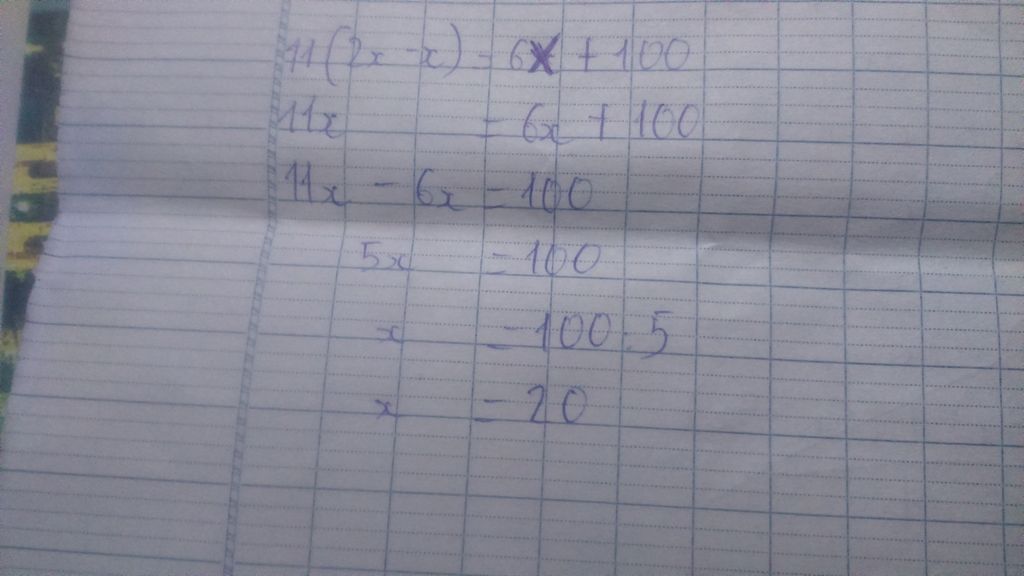 11(2x - x) = 6x + 100
11x = 6x + 100
11x - 6x = 100
5x = 100
x = 100 : 5
x = 20